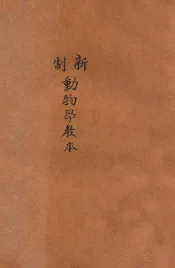 新制
動物學教本